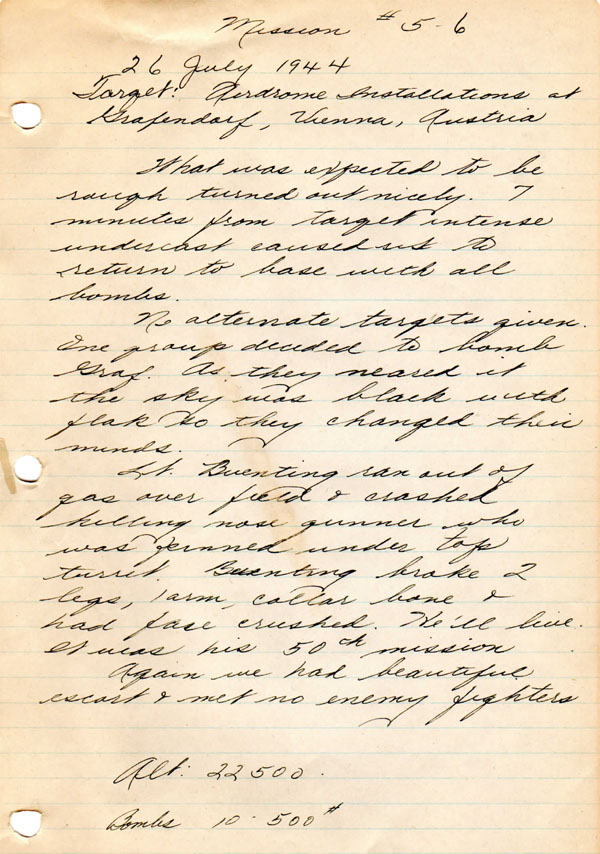 Mission # 5-6
26 July 1944
Target: Airdrome Installations at
Grafendorf, Vienna, Austria
What was expected to be
rough turned out nicely. 7
minutes from target intense
undercast caused us to
return to base with all
bombs.
No alternate targets given.
One group decided to bomb
Graf. As they neared it
the sky was black with
flak so they changed their
minds.
Lt. Buenting ran out of
gas over field & crashed
killing nose gunner who
was pinned under top
turret. Buenting broke 2
legs, 1 arm, collar bone &
had fase crushed. He'll live.
It was his 50th mission
Again we had beautiful
escort & met no enemy fighters
Alt: 22500.
Bombs 10-500#